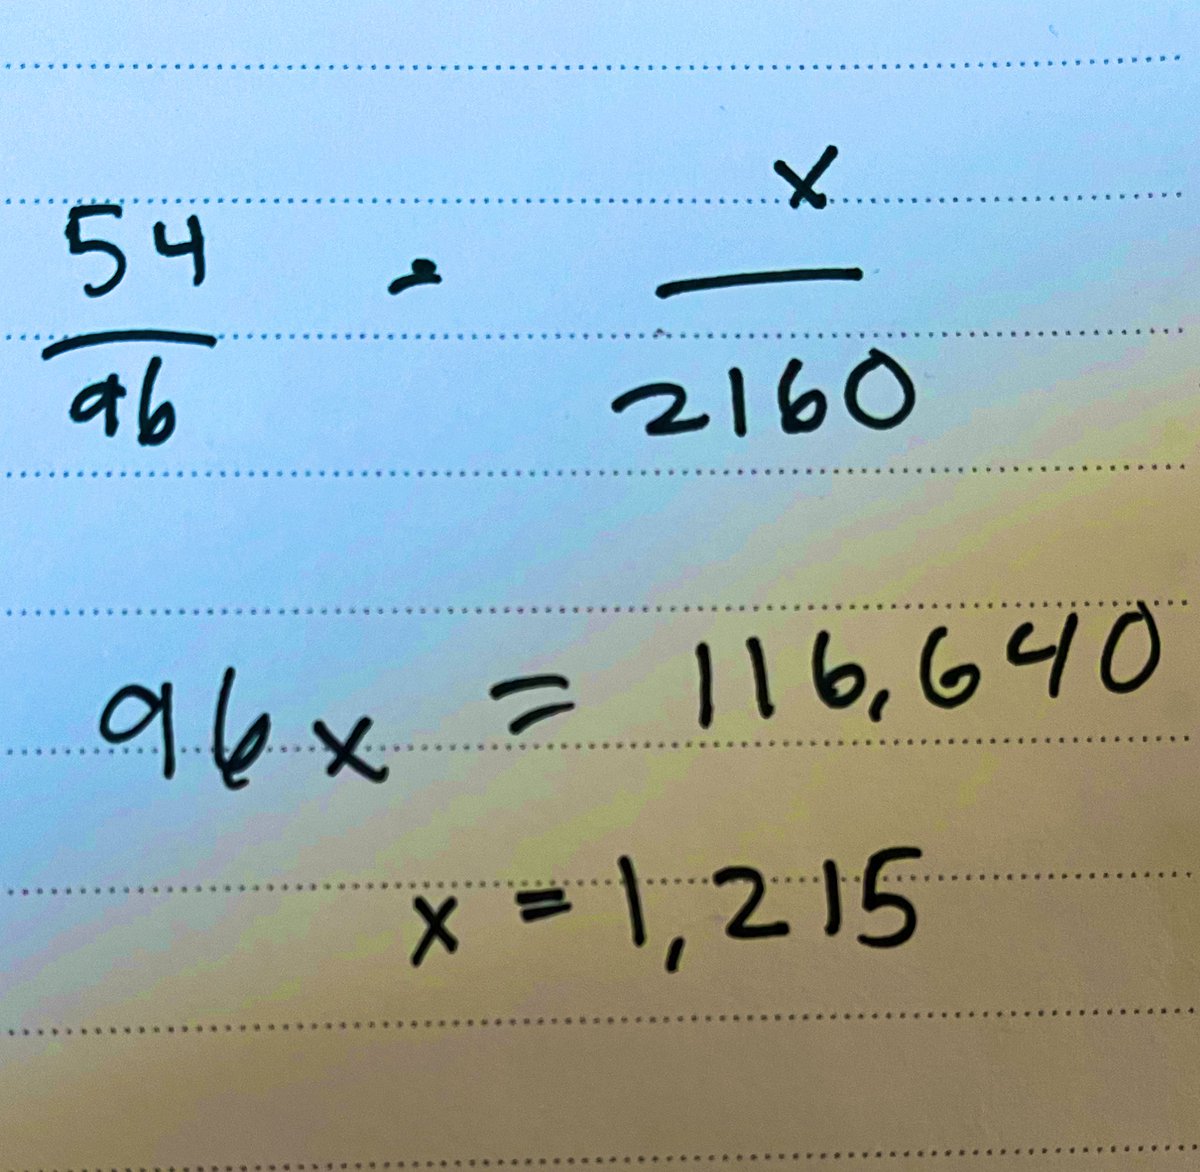 54/96 = x/2160
96x = 116,640
x = 1,215